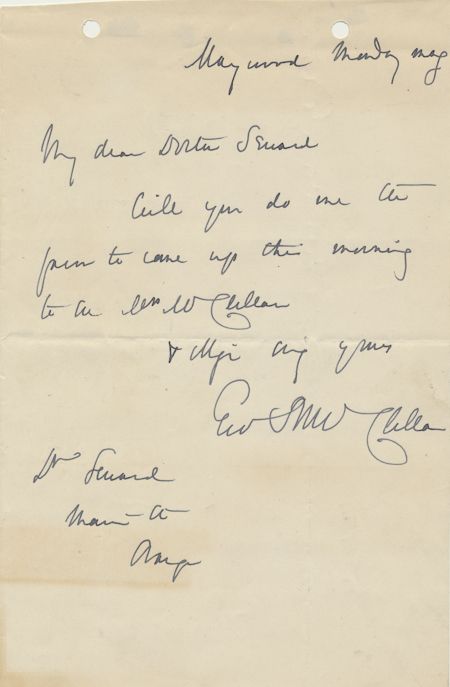 Maywood Monday mng
My dear Doctor Seward
Will you do me the
favor to come up this morning
to see Mrs McClellan
& oblige truly yours
Geo B McClellan
Dr Seward
Main St
Orange